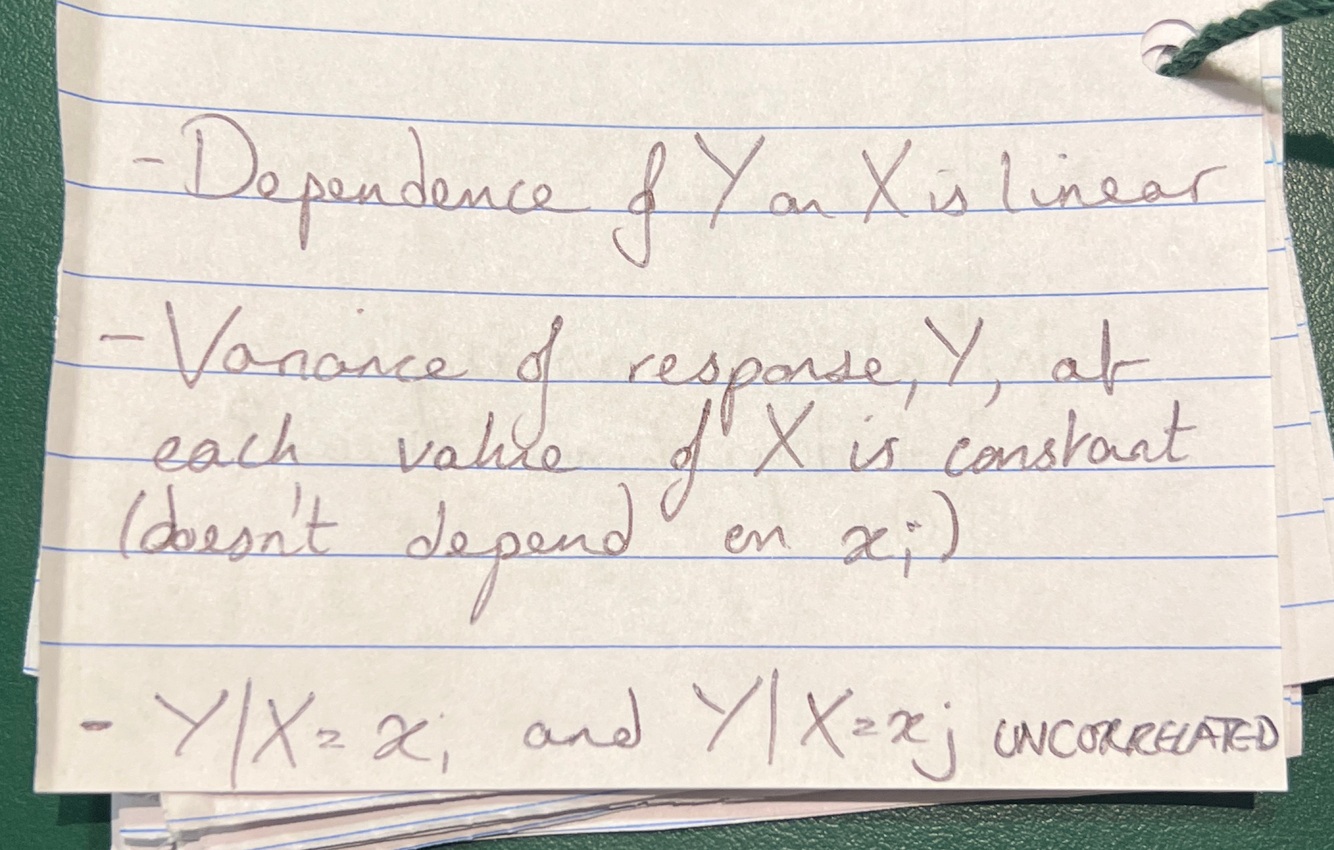 - Dependence of Y on X is linear
- Variance of response, Y, at
each value of X is constant
(doesn't depend on xᵢ)
- Y|X=xᵢ and Y|X=xⱼ UNCORRELATED